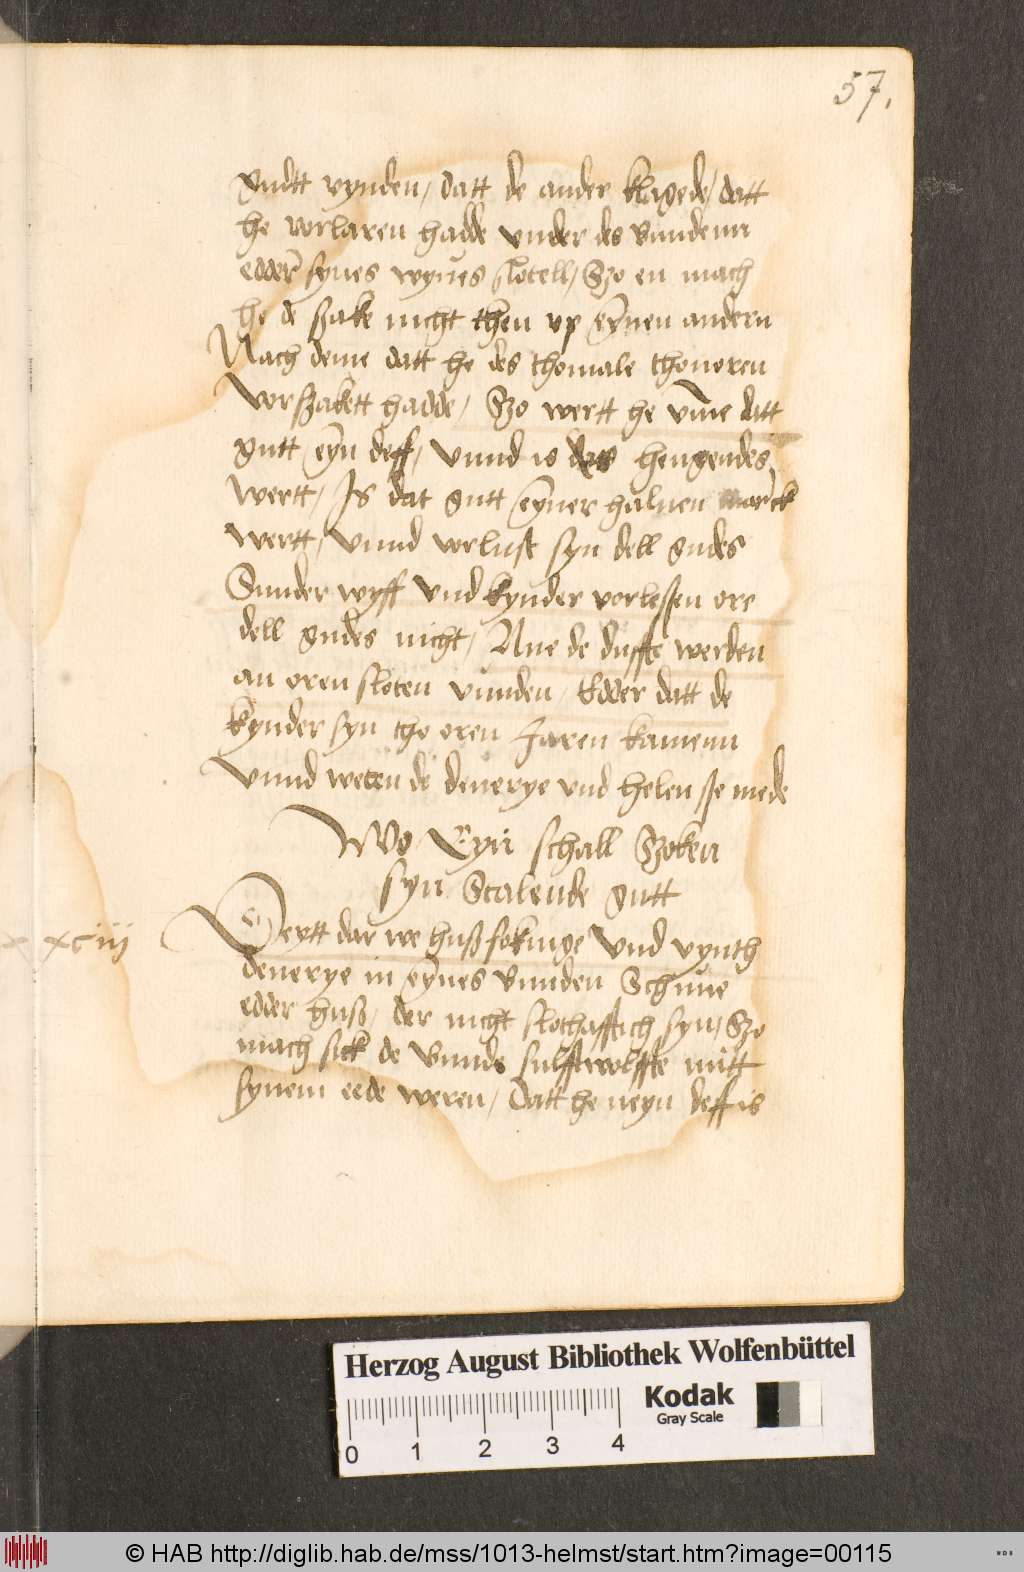 57.
gudtt vynden, datt de ander klagede, datt
he vorlaren hadde vnder des Vundenn
edder synes wyues slotell, Szo en mach
he de szake nicht then vp eynen andern
Nach deme datt he des thomale thouoren
vorszakett hadde, Szo wertt he vmme datt
gutt eyn deff, vnnd is des hengendes
wertt, Is dat gutt eyner haluen marck
wertt, vnnd vorlust syn dell gudes
Sunder wyff vnd kynder vorlessen ore
dell gudes nicht, Ane de duffte werden
an oren sloten vunden, Edder datt de
kynder syn tho oren Jaren kamenn
Vnnd weten de deuerye vnd helen sse mede
Wo Eyn schall Szoken
syn Stalende gutt
xciij
Deytt dar we hußsokinge vnd vynth
deuerye in eynes Vunden Schune
edder huß, der nicht slothafftich syn, Szo
mach sick de Vunde sulfftwolffte mitt
synem eede weren, Datt he neyn deff is
Herzog August Bibliothek Wolfenbüttel
Kodak
Gray Scale
0 1 2 3 4
© HAB http://diglib.hab.de/mss/1013-helmst/start.htm?image=00115